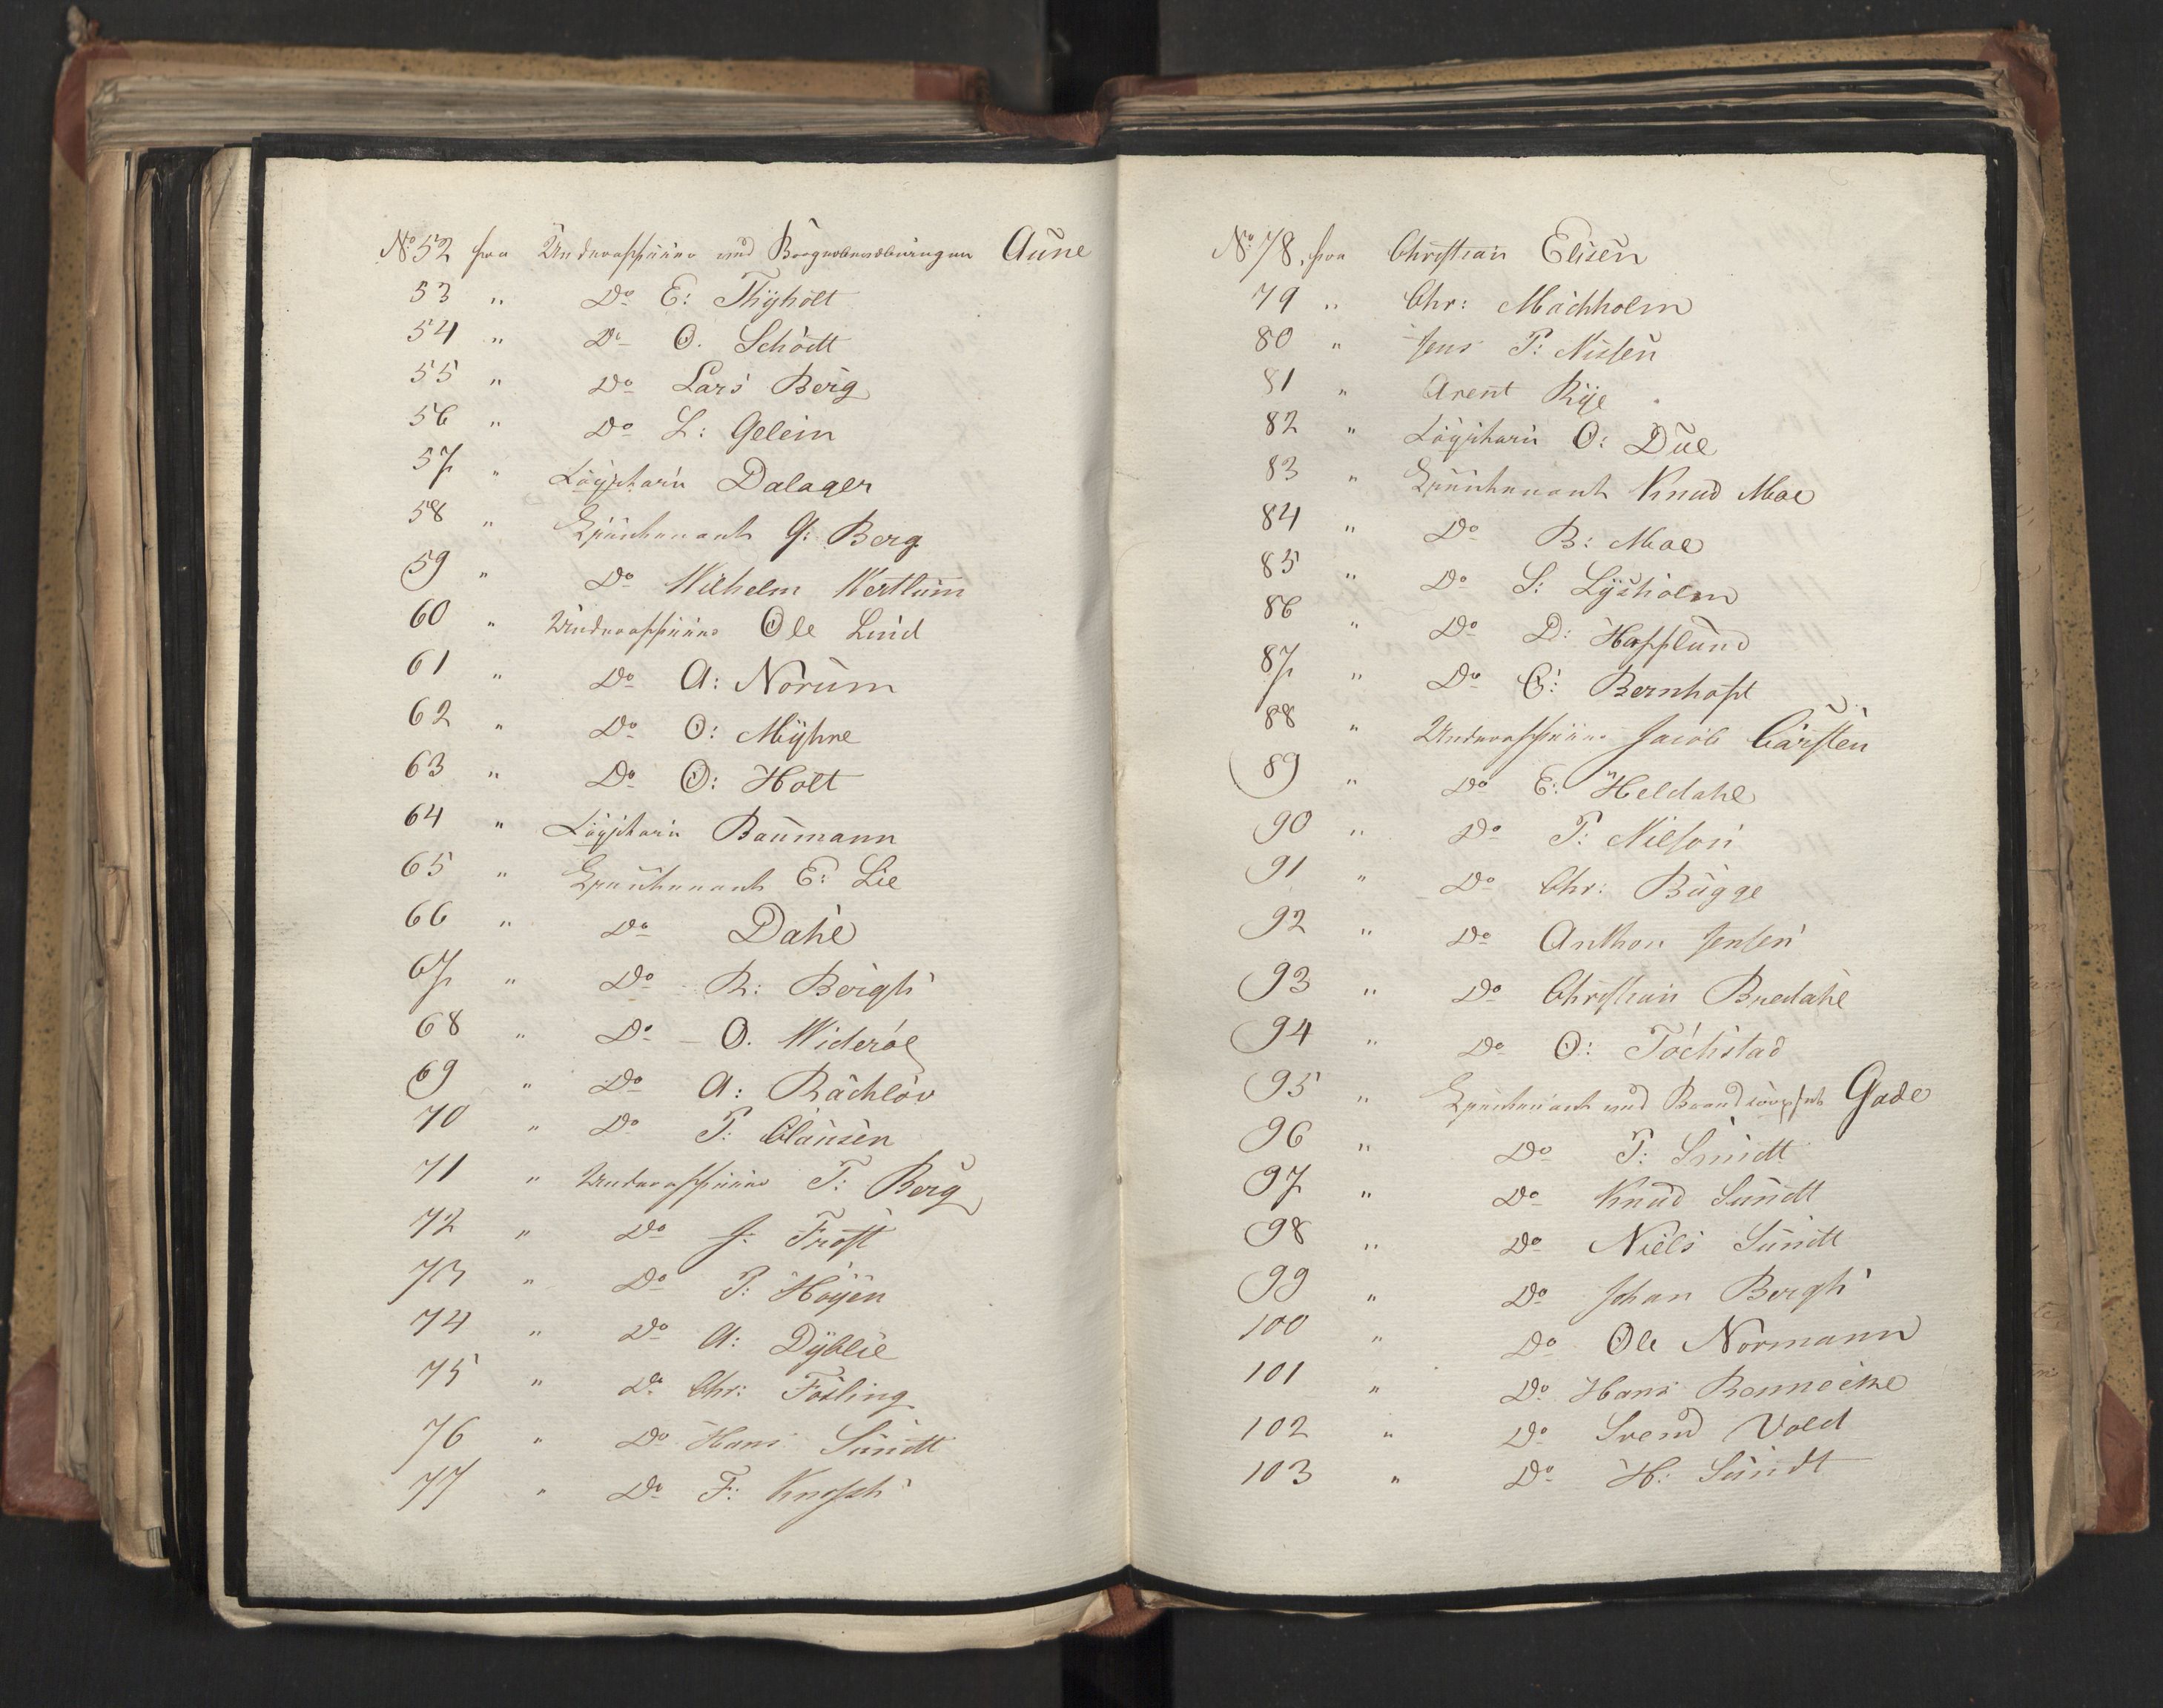 No. 52 fra Underofficeer ved Borgerbevæbningen Aune
53 " Do E: Thÿholt
54 " Do O. Schódtt
55 " Do Lars Berg
56 " Do L: Gelein
57 " Löÿtn Dalager
58 " Lieutenant G: Berg
59 " Do Wilhelm Westlum
60 " Underofficeer Ole Lind
61 " Do A: Norum
62 " Do O: Mÿhre
63 " Do O: Holt
64 " Baumann
65 " Lieutenant E: Lie
66 " Do Dahl
67 " Do R: Bergh
68 " Do O. Widerøe
69 " Do A: Rachlóv
70 " Do P: Clausen
71 " Underofficeer T: Berg
72 " Do J: Frost
73 " Do P: Höÿen
74 " Do A: Dÿblie
75 " Do Chr: Fósling
76 " Do Hans Sundt
77 " Do F: Knoph
No. 78. fra Christian Elisen
79 " Chr: Machholm
80 " Jens P: Nissen
81 " Arent Rÿe
82 " O: Due
83 " Lieutenant Knud Moe
84 " Do B: Moe
85 " Do S: Lÿsholm
86 " Do D: Hofflund
87 " Do C: Bernhoft
88 " Underofficeer Jacob Carsten
89 " Do E: Heldahl
90 " Do P: Nilson
91 " Do Chr: Bugge
92 " Do Anthon Jensen
93 " Do Christian Bredahl
94 " Do O: Tóchstad
95 " Lieutenant ved Brandcorpset Gade
96 " Do P: Smidt
97 " Do Knud Sundt
98 " Do Niels Sundt
99 " Do Johan Bergh
100 " Do Ole Normann
101 " Do Hans Bonnecke
102 " Do Svend Vold
103 " Do H: Sundt